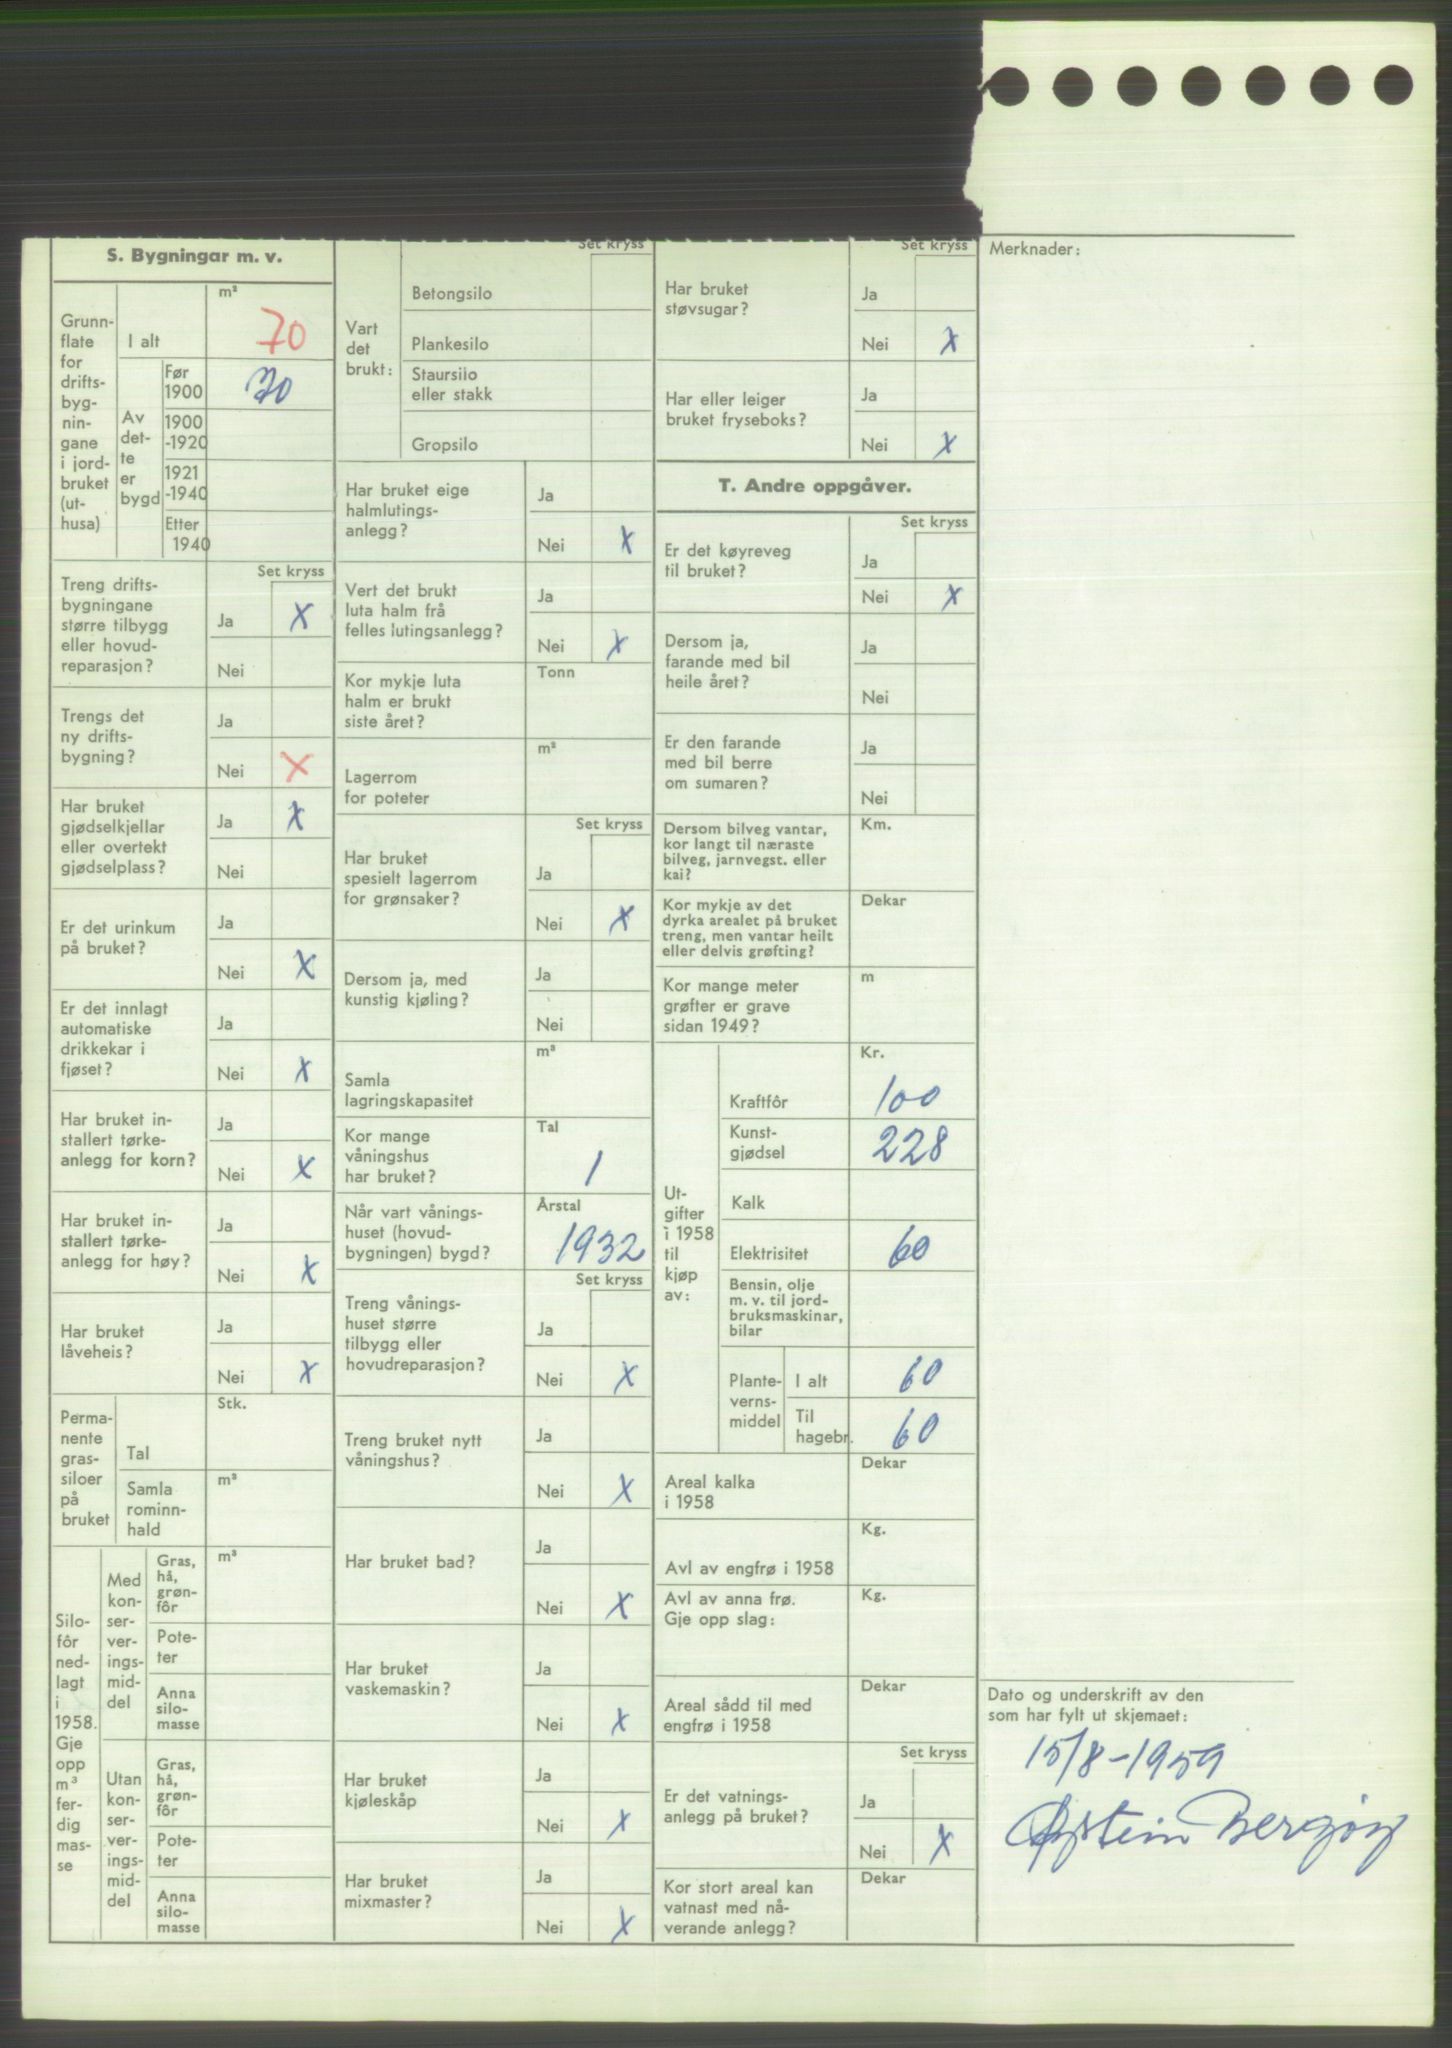 S. Bygningar m. v.
Grunn-
flate
for
drifts-
byg-
nin-
gane
i jord-
bruket
(ut-
husa)
I alt
m²
70
Av
det-
te
er
bygd
Før
1900
70
1900
-1920
1921
-1940
Etter
1940
Set kryss
Treng drifts-
bygningane
større tilbygg
eller hovud-
reparasjon?
Ja X
Nei
Trengs det
ny drifts-
bygning?
Ja
Nei X
Har bruket
gjødselkjellar
eller overtekt
gjødselplass?
Ja X
Nei
Er det urinkum
på bruket?
Ja
Nei X
Er det innlagt
automatiske
drikkekar i
fjøset?
Ja
Nei X
Har bruket in-
stallert tørke-
anlegg for korn?
Ja
Nei X
Har bruket in-
stallert tørke-
anlegg for høy?
Ja
Nei X
Har bruket
låveheis?
Ja
Nei X
Perma-
nente
gras-
siloer
på
bruket
Tal
Stk.
Samla
rominn-
hald
m³
Silo-
fôr
ned-
lagt
i
1958.
Gje
opp
m³
fer-
dig
mas-
se
Med
kon-
ser-
ver-
ings-
mid-
del
Gras,
hå,
grøn-
fôr
m³
Pote-
ter
Anna
silo-
masse
Utan
kon-
ser-
ver-
ings-
mid-
del
Gras,
hå,
grøn-
fôr
Pote-
ter
Anna
silo-
masse
Set kryss
Vart
det
brukt:
Betongsilo
Plankesilo
Staursilo
eller stakk
Gropsilo
Har bruket eige
halmlutings-
anlegg?
Ja
Nei X
Vert det brukt
luta halm frå
felles lutingsanlegg?
Ja
Nei X
Kor mykje luta
halm er brukt
siste året?
Tonn
Lagerrom
for poteter
m²
Set kryss
Har bruket
spesielt lagerrom
for grønsaker?
Ja
Nei X
Dersom ja, med
kunstig kjøling?
Ja
Nei
Samla
lagringskapasitet
m³
Kor mange
våningshus
har bruket?
Tal
1
Når vart vånings-
huset (hovud-
bygningen) bygd?
Årstal
1932
Set kryss
Treng vånings-
huset større
tilbygg eller
hovudreparasjon?
Ja
Nei X
Treng bruket nytt
våningshus?
Ja
Nei X
Har bruket bad?
Ja
Nei X
Har bruket
vaskemaskin?
Ja
Nei X
Har bruket
kjøleskåp
Ja
Nei X
Har bruket
mixmaster?
Ja
Nei X
Set kryss
Har bruket
støvsugar?
Ja
Nei X
Har eller leiger
bruket fryseboks?
Ja
Nei X
T. Andre oppgåver.
Set kryss
Er det køyreveg
til bruket?
Ja
Nei X
Dersom ja,
farande med bil
heile året?
Ja
Nei
Er den farande
med bil berre
om sumaren?
Ja
Nei
Dersom bilveg vantar,
kor langt til næraste
bilveg, jarnvegst. eller
kai?
Km.
Kor mykje av det
dyrka arealet på bruket
treng, men vantar heilt
eller delvis grøfting?
Dekar
Kor mange meter
grøfter er grave
sidan 1949?
m
Ut-
gifter
i 1958
til
kjøp
av:
Kr.
Kraftfôr 100
Kunst-
gjødsel 228
Kalk
Elektrisitet 60
Bensin, olje
m. v. til jord-
bruksmaskinar,
bilar
Plante-
verns-
middel
I alt 60
Til
hagebr. 60
Areal kalka
i 1958
Dekar
Avl av engfrø i 1958
Kg.
Avl av anna frø.
Gje opp slag:
Kg.
Areal sådd til med
engfrø i 1958
Dekar
Set kryss
Er det vatnings-
anlegg på bruket?
Ja
Nei X
Kor stort areal kan
vatnast med nå-
verande anlegg?
Dekar
Merknader:
Dato og underskrift av den
som har fylt ut skjemaet:
15/8-1959
Øystein